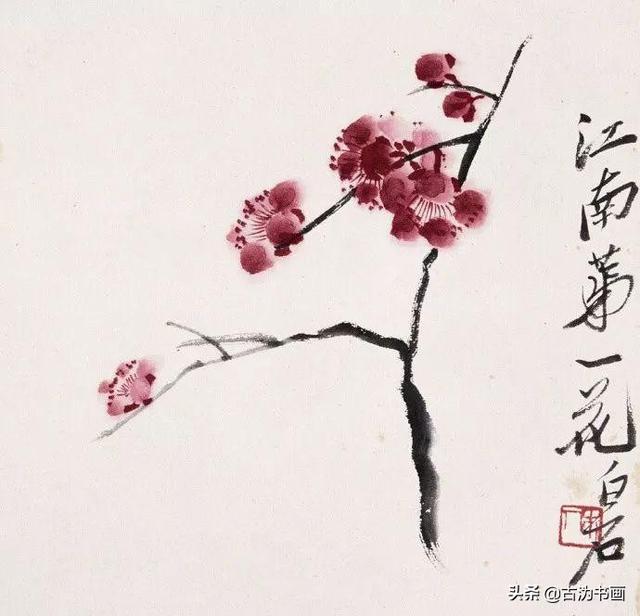 江南第一花
白石
头条 @古沕书画